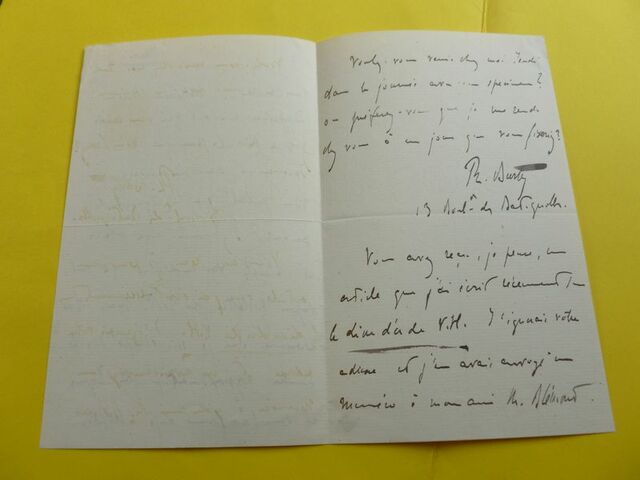 Voulez-vous venir chez moi Jeudi
dans la journée avec un specimen?
ou préférez-vous que je me rende
chez vous à un jour que vous fixerez?
Ph. Burty
13 Boulᵈ des Batignolles.
Vous avez reçu, je pense, un
article que j'ai écrit récemment sur
le de V.H. J'ignorais votre
adresse et j'en avais envoyé un
numéro à mon ami M. Blémont.